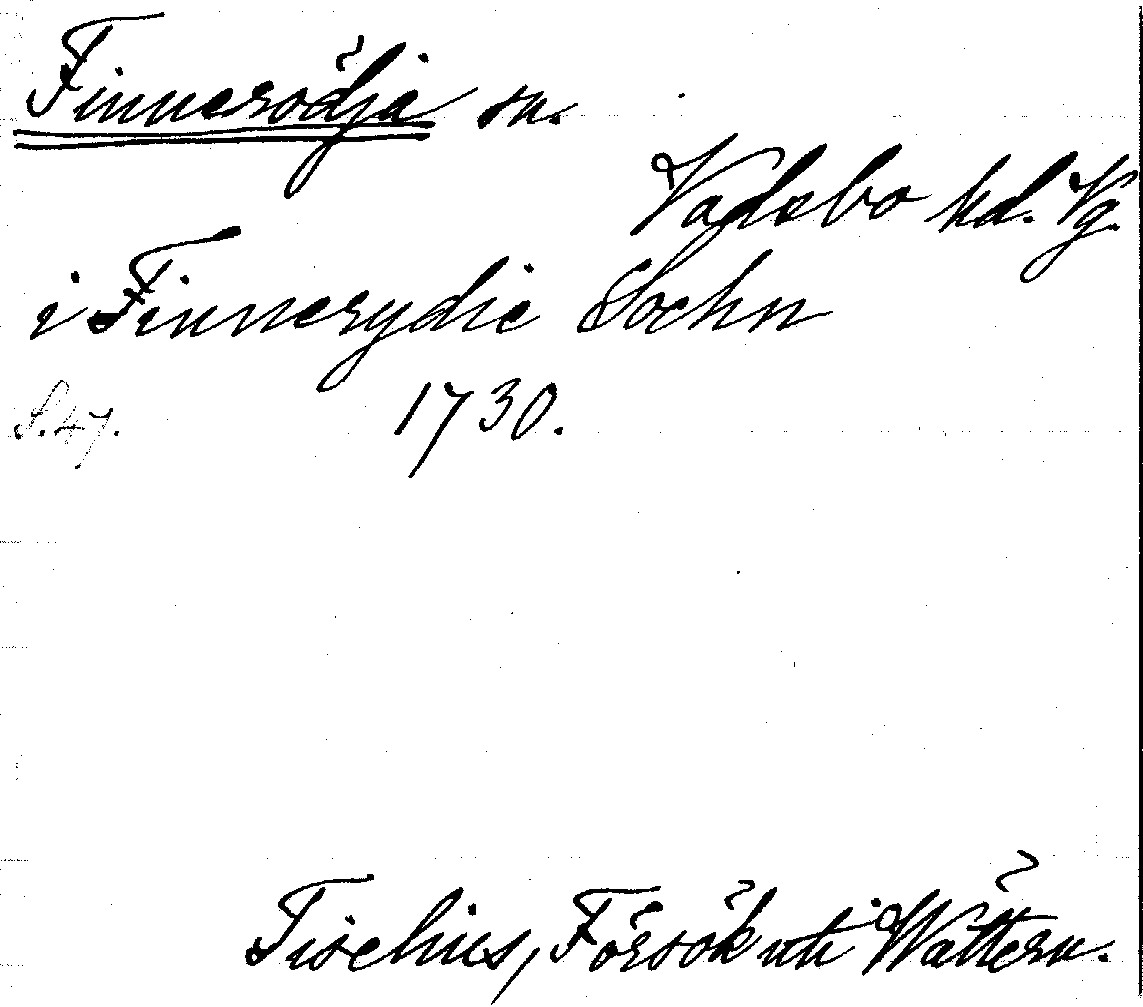 Finnerödja sn.
Vadsbo hd. Vg.
i Finnerydie Sochn
S. 47. 1730.
Tiselius, Försök uti Wättern.